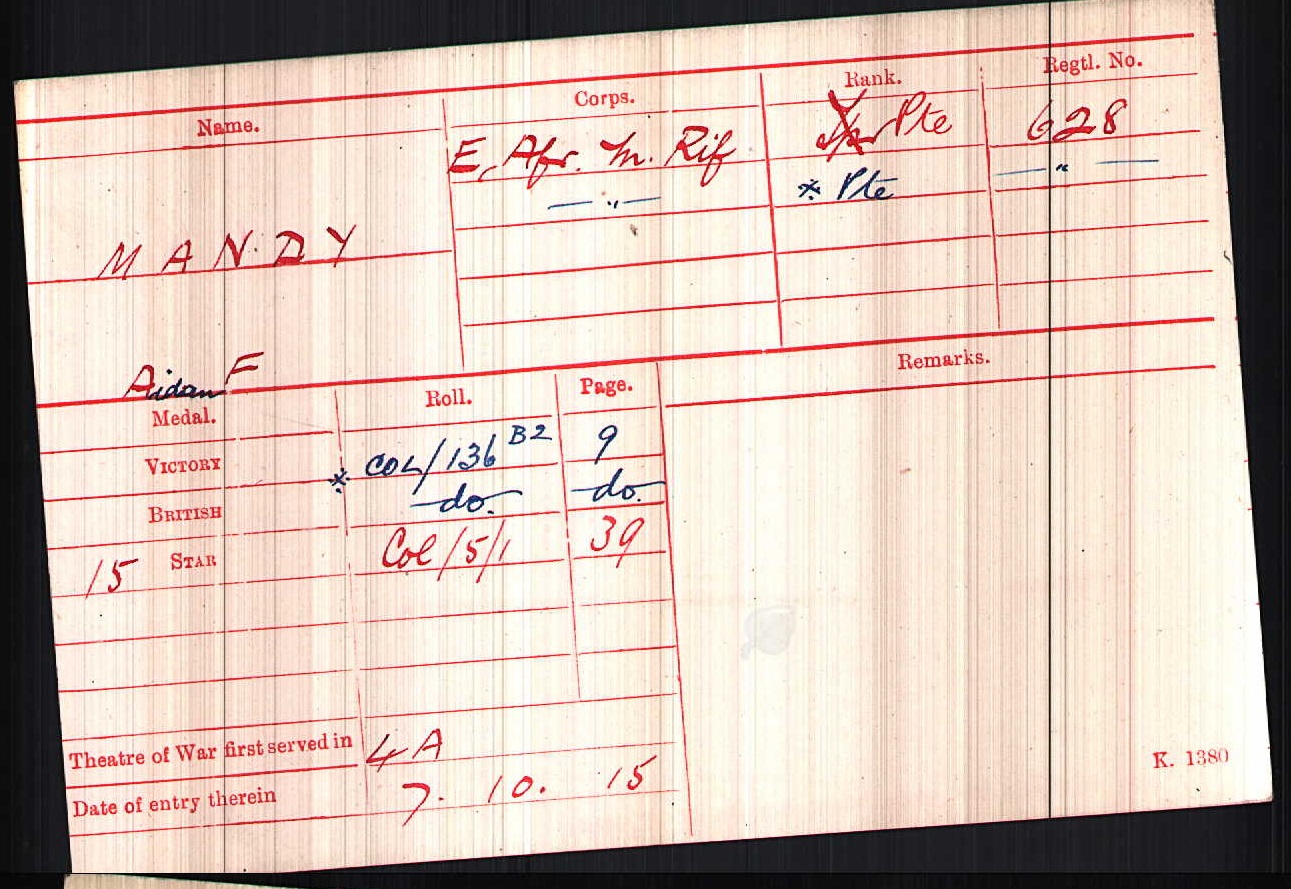 Name. Corps. Rank. Regtl. No.
MANDY E. Afr. M. Rif Pte 628
— " — * Pte — " —
Aidan F
Medal. Roll. Page. Remarks.
VICTORY * COL/136 B2 9
BRITISH —do.— —do.—
15 STAR Col/5/1 39
Theatre of War first served in 4A
Date of entry therein 7. 10. 15
K. 1380